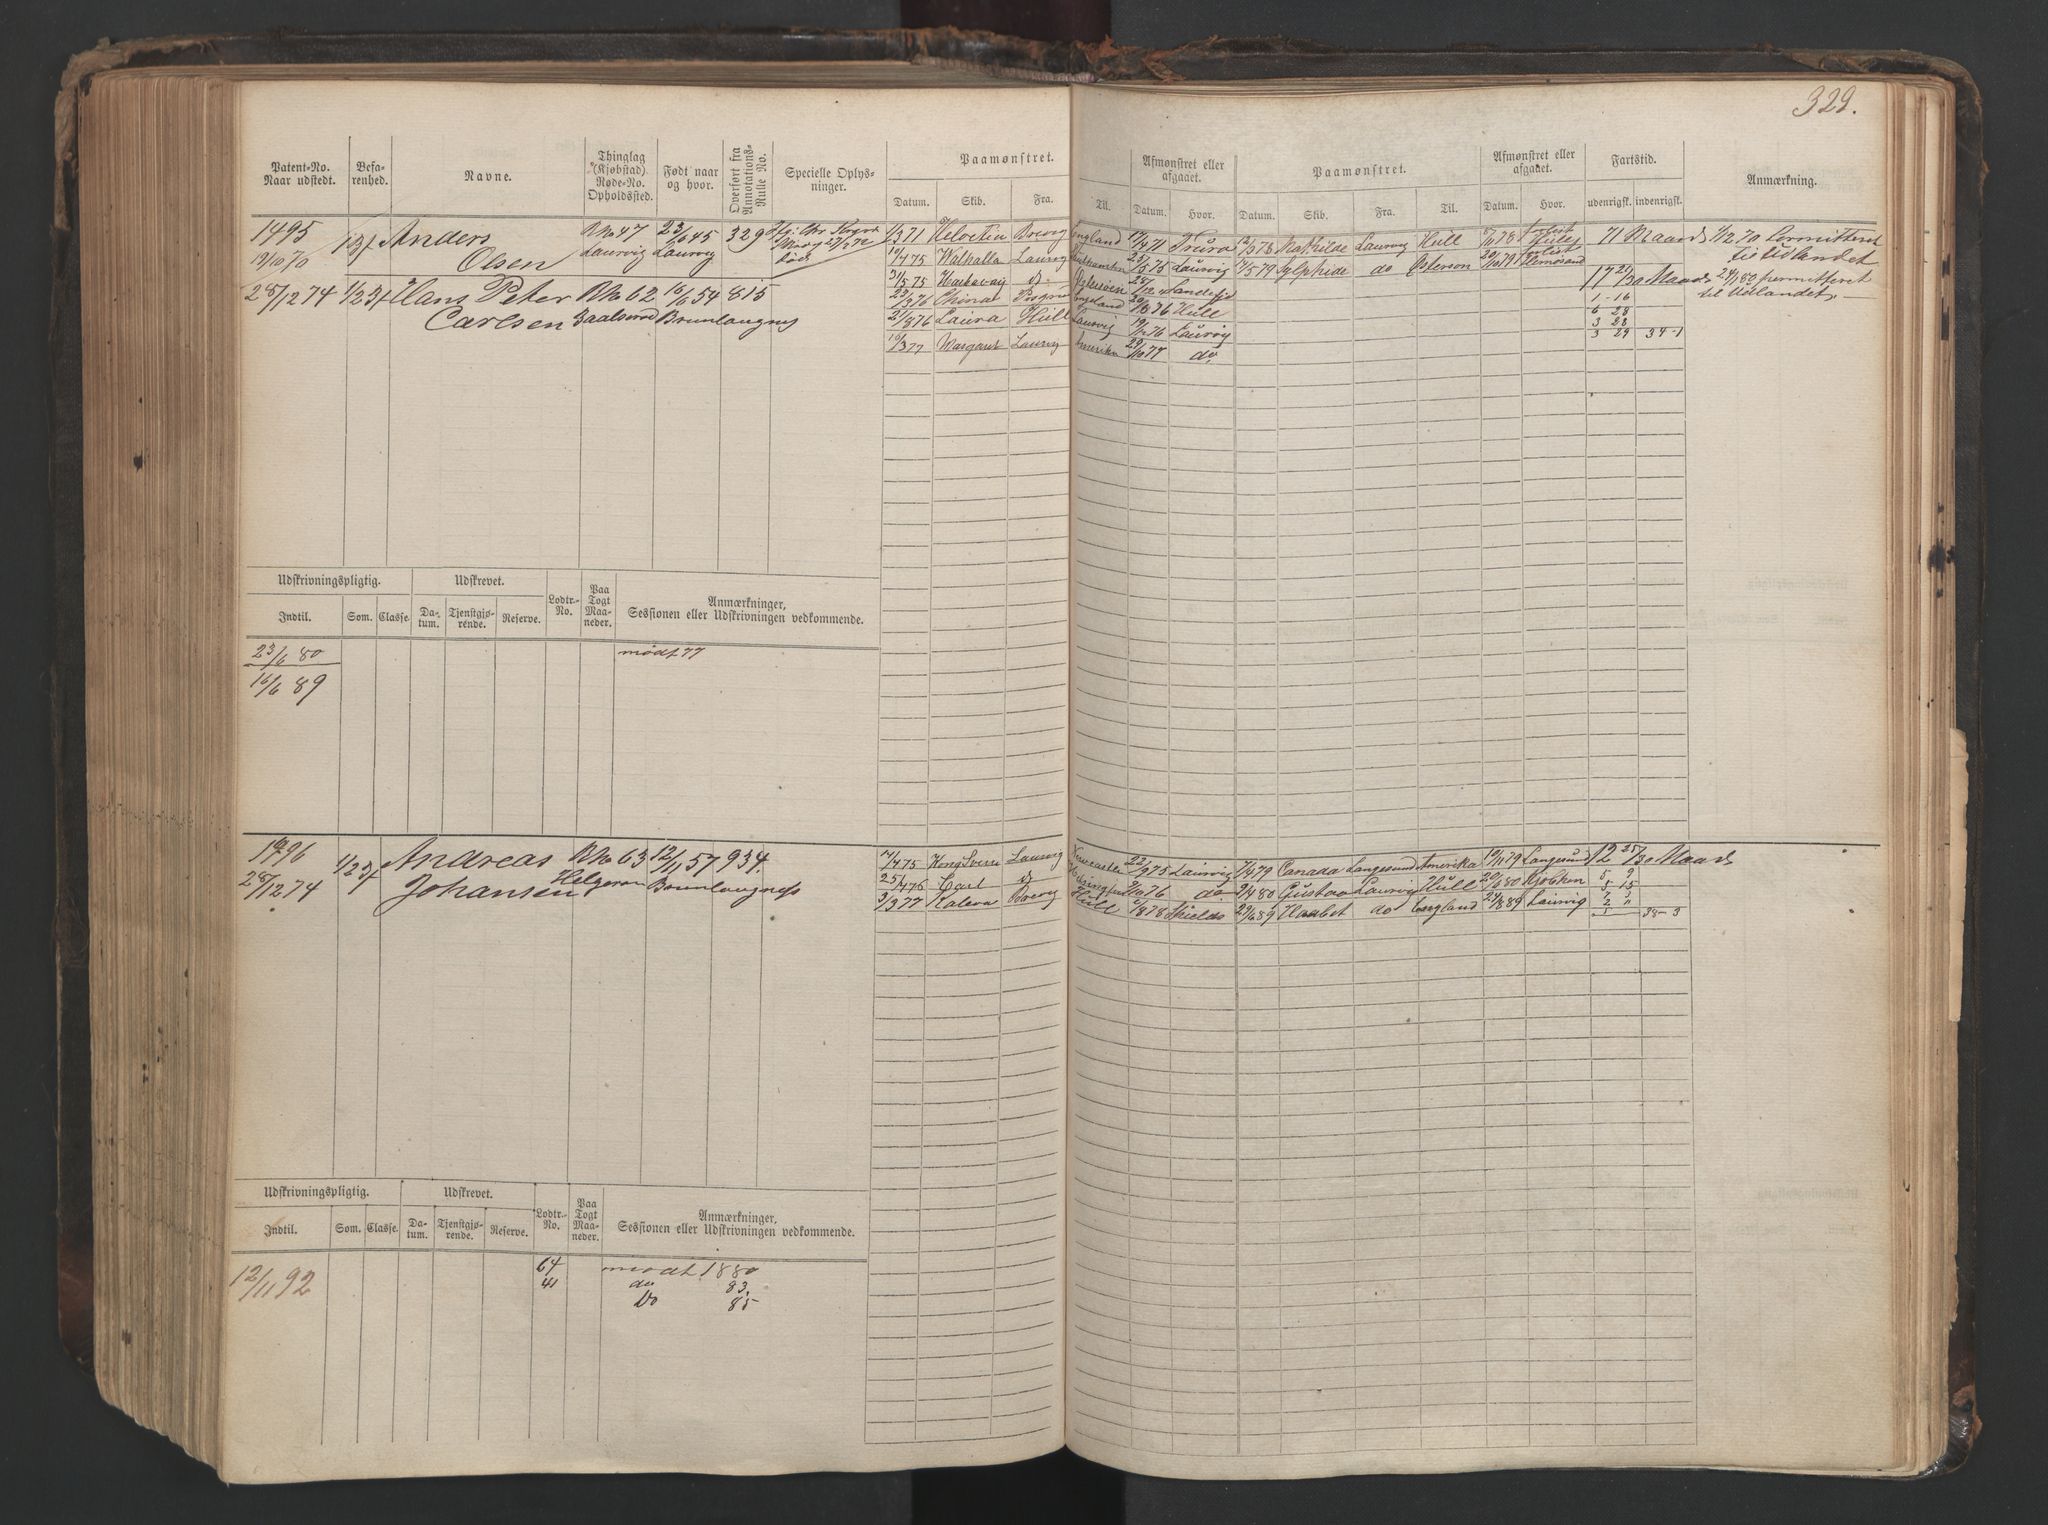 329.
Patent-No. Naar udstedt.
Befarenhed.
Navne.
Thinglag (Kjøbstad) Rode-No. Opholdssted.
Født naar og hvor.
Overført fra Annotations-Rulle No.
Specielle Oplysninger.
Paamønstret.
Datum. Skib. Fra. Til.
Afmønstret eller afgaaet.
Datum. Hvor.
Paamønstret.
Datum. Skib. Fra. Til.
Afmønstret eller afgaaet.
Datum. Hvor.
Fartstid.
udenrigsk. indenrigsk.
Anmærkning.
1495
19/10 70
Anders
Olsen
R No 47
Laurvig
23/6 45
Laurvig
329
27/2 72
død
28/12 74
1/23 f
Hans Peter
Carlsen
R No 62
16/6 54
Brunlaugnes
815
1/3 71 Helvetia Brevig England 17/4 71 Truro
10/4 75 Walhalla Laurvig 25/5 75 Laurvig
31/5 75 do
23/3 76 China England 20/8 76 Hull
21/8 76 Laura Hull Laurvig 19/12 76 Laurvig
10/3 77 Margaret Laurvig Amerika 29/10 77 do
12/3 78 Mathilde Laurvig Hull
5/79 Sylphide do
71 Maand
17 21/30 Maand
1 - 16
6 28
3 28
3 29 34-1
1/12 70 Permitteret
til Udlandet
24/1 80 permitteret
til Udlandet
Udskrivningspligtig.
Indtil. Som. Classe.
Udskrevet.
Datum. Tjenstgjørende. Reserve.
Lodtr.-No.
Paa Togt Maaneder.
Anmærkninger, Sessionen eller Udskrivningen vedkommende.
23/6 80
mødt 77
16/6 89
1496
28/12 74
1/23 f
Andreas
Johansen
R No 63
Helgeroa
12/11 57
Brunlaugnes
934.
17/4 75 Kong Sverre Laurvig Newcastle 22/9 75 Laurvig 7/4 79 Canada Langesund Amerika 19/11 79 Langesund 12 25/30 Maand
25/4 76 Carl do 76 do 9/4 80 Gustav Laurvig Hull 20/6 80 Kjøbhvn
3/3 77 Kaleva Brevig Hull 8 78 Shields 29/6 89 Haabet do England 89 Laurvig
5 2
5 15
38-3
Udskrivningspligtig.
Indtil. Som. Classe.
Udskrevet.
Datum. Tjenstgjørende. Reserve.
Lodtr.-No.
Paa Togt Maaneder.
Anmærkninger, Sessionen eller Udskrivningen vedkommende.
12/11 92
64 mødt 1880
41 do 83.
Do 85